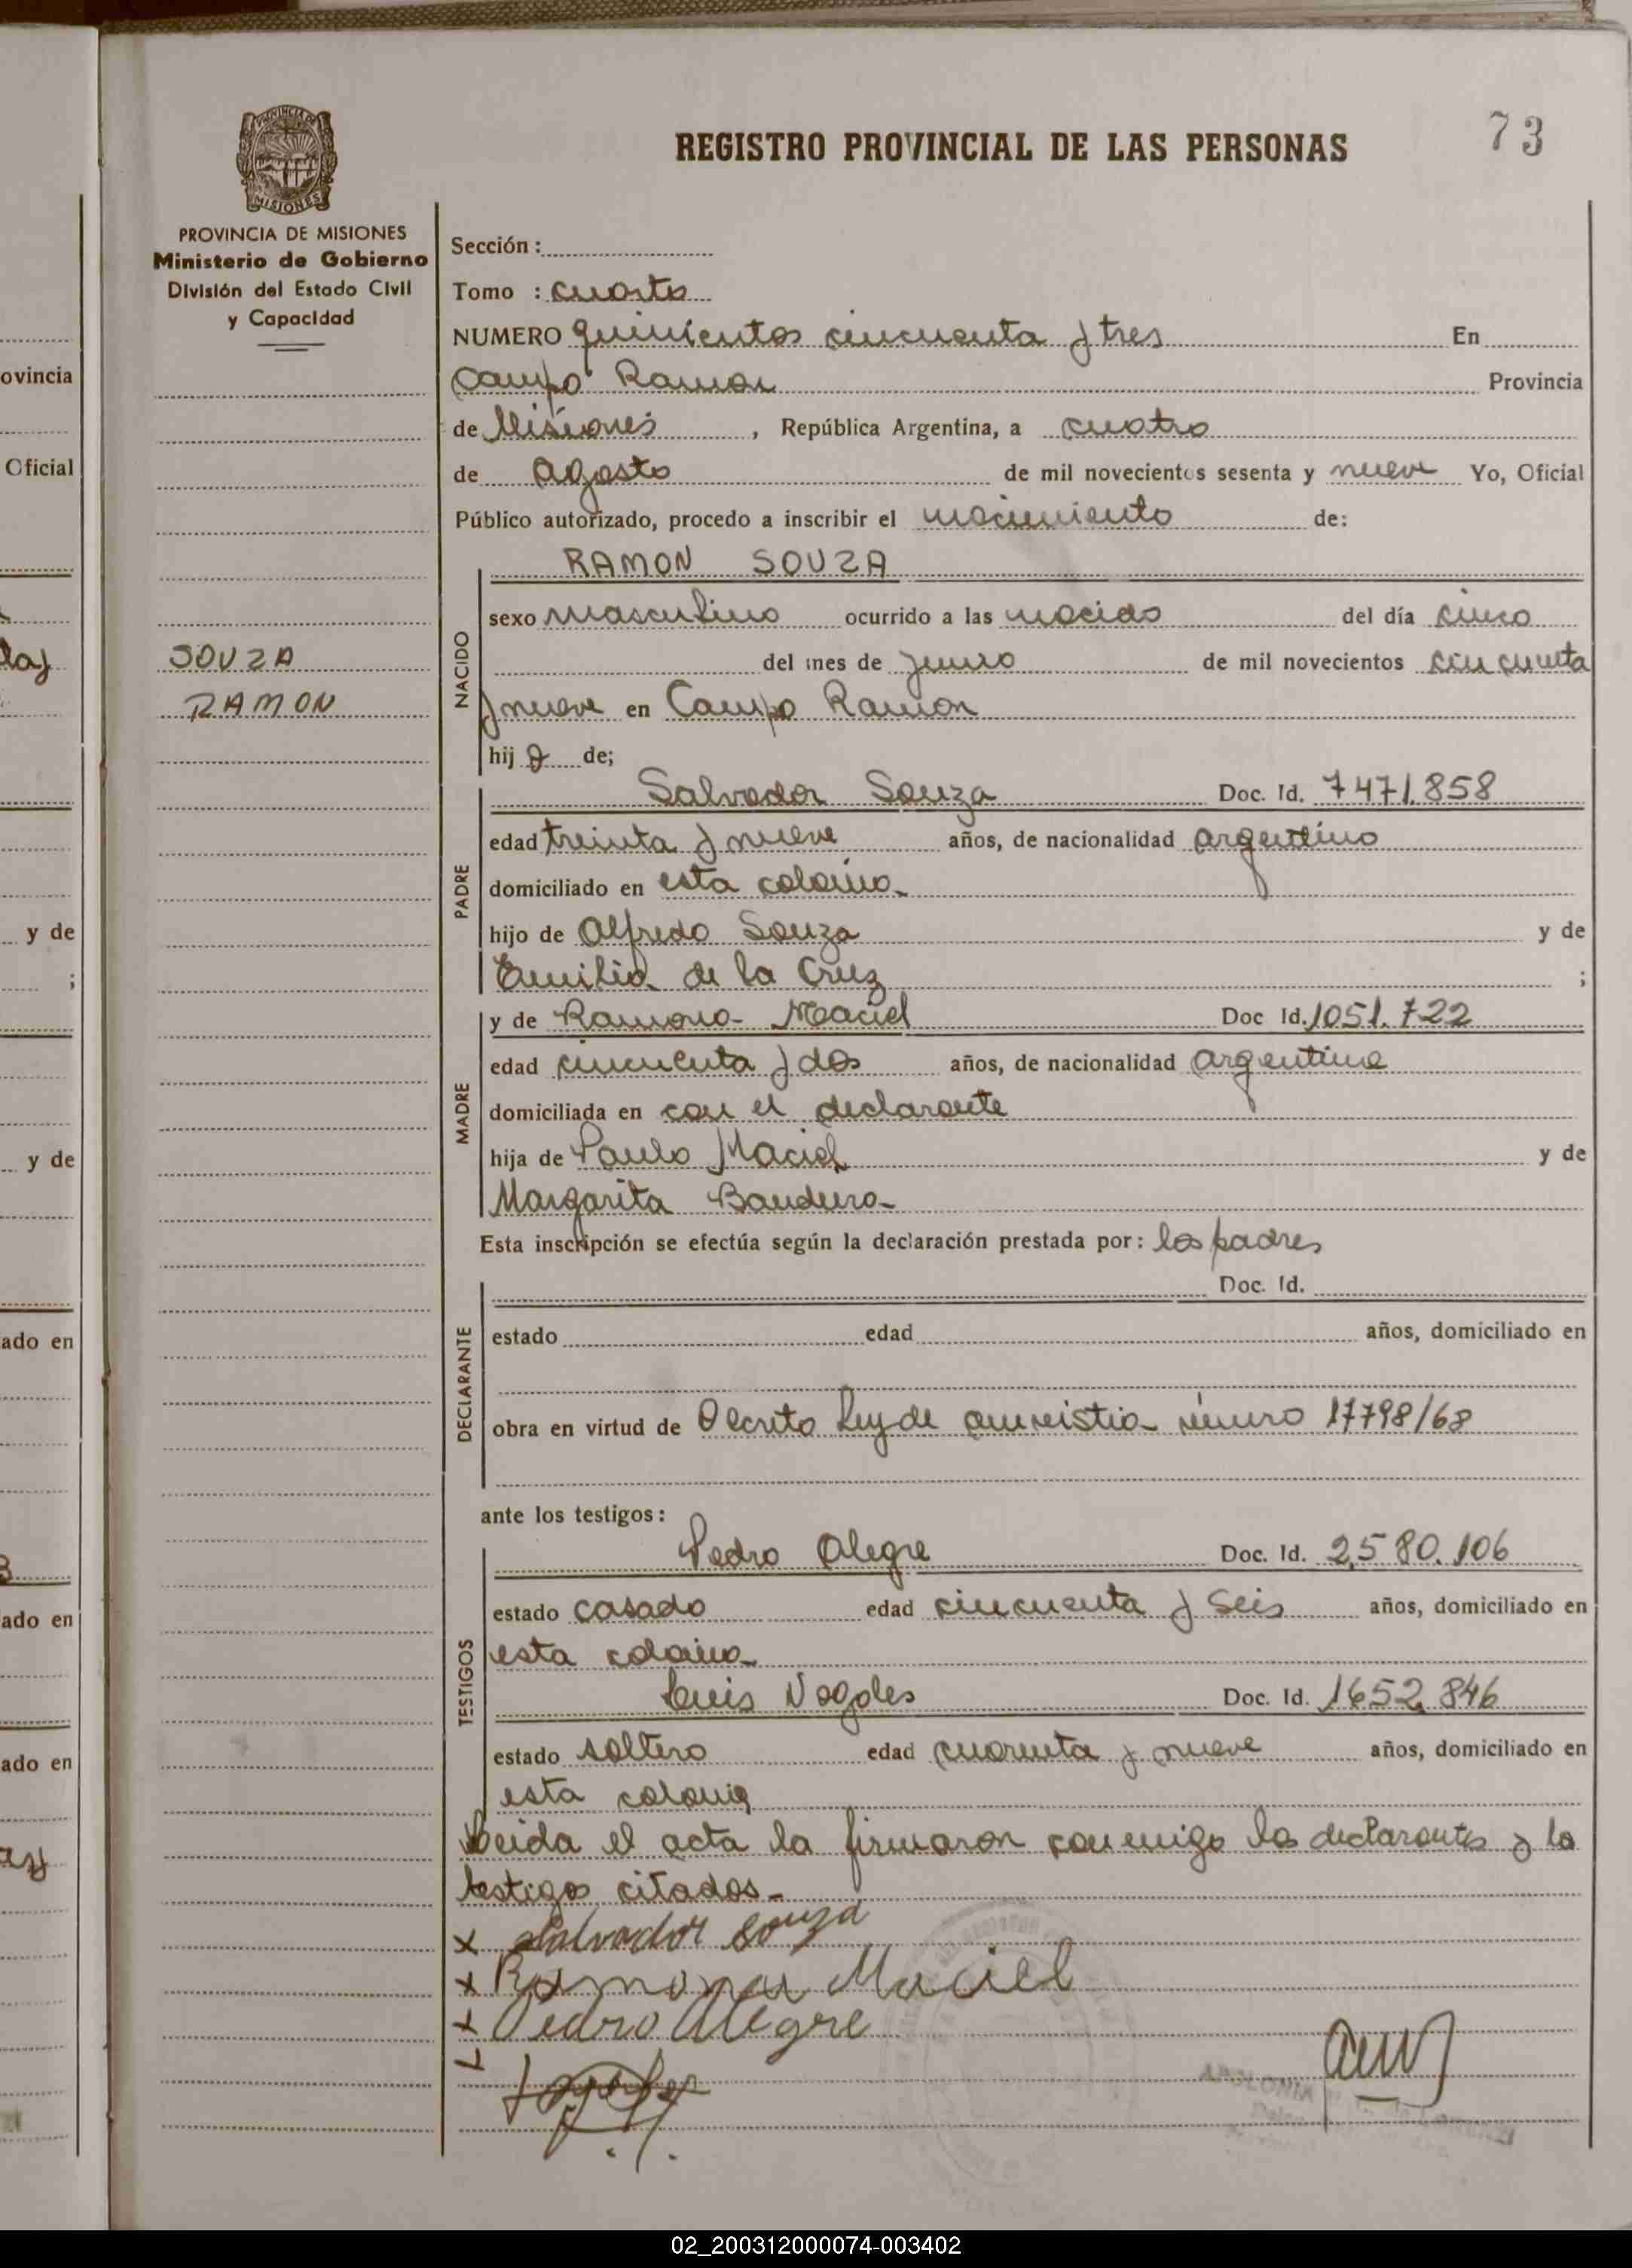 73
REGISTRO PROVINCIAL DE LAS PERSONAS
PROVINCIA DE MISIONES
MISIONES
PROVINCIA DE MISIONES
Ministerio de Gobierno
División del Estado Civil
y Capacidad
SOUZA
RAMON
Sección :
Tomo : cuarto
NUMERO quinientos cincuenta y tres En
Campo Ramon Provincia
de Misiones , República Argentina, a cuatro
de agosto de mil novecientos sesenta y nueve Yo, Oficial
Público autorizado, procedo a inscribir el nacimiento de:
RAMON SOUZA
NACIDO
sexo masculino ocurrido a las nacido del día cinco
del mes de junio de mil novecientos cincuenta
y nueve en Campo Ramon
hij o de;
PADRE
Salvador Souza Doc. Id. 7471.858
edad treinta y nueve años, de nacionalidad argentino
domiciliado en esta colonia
hijo de Alfredo Souza y de
Emilia de la Cruz ;
MADRE
y de Ramona Maciel Doc Id. 1051.722
edad cincuenta y dos años, de nacionalidad argentina
domiciliada en con el declarante
hija de Paulo Maciel y de
Margarita
Esta inscripción se efectúa según la declaración prestada por: los padres
DECLARANTE
Doc. Id.
estado edad años, domiciliado en
obra en virtud de Decreto Ley de amnistia número 17798/68
ante los testigos:
TESTIGOS
Pedro Alegre Doc. Id. 2,580.106
estado casado edad cincuenta y seis años, domiciliado en
esta colonia
Luis Nogales Doc. Id. 1652.846
estado soltero edad cuarenta y nueve años, domiciliado en
esta colonia
Leida el acta la firmaron conmigo los declarantes y lo
testigos citados
x Salvador Souza
x Ramona Maciel
x Pedro Alegre
APOLONIA
ovincia
Oficial
y de
;
y de
ado en
ado en
ado en
02_200312000074-003402